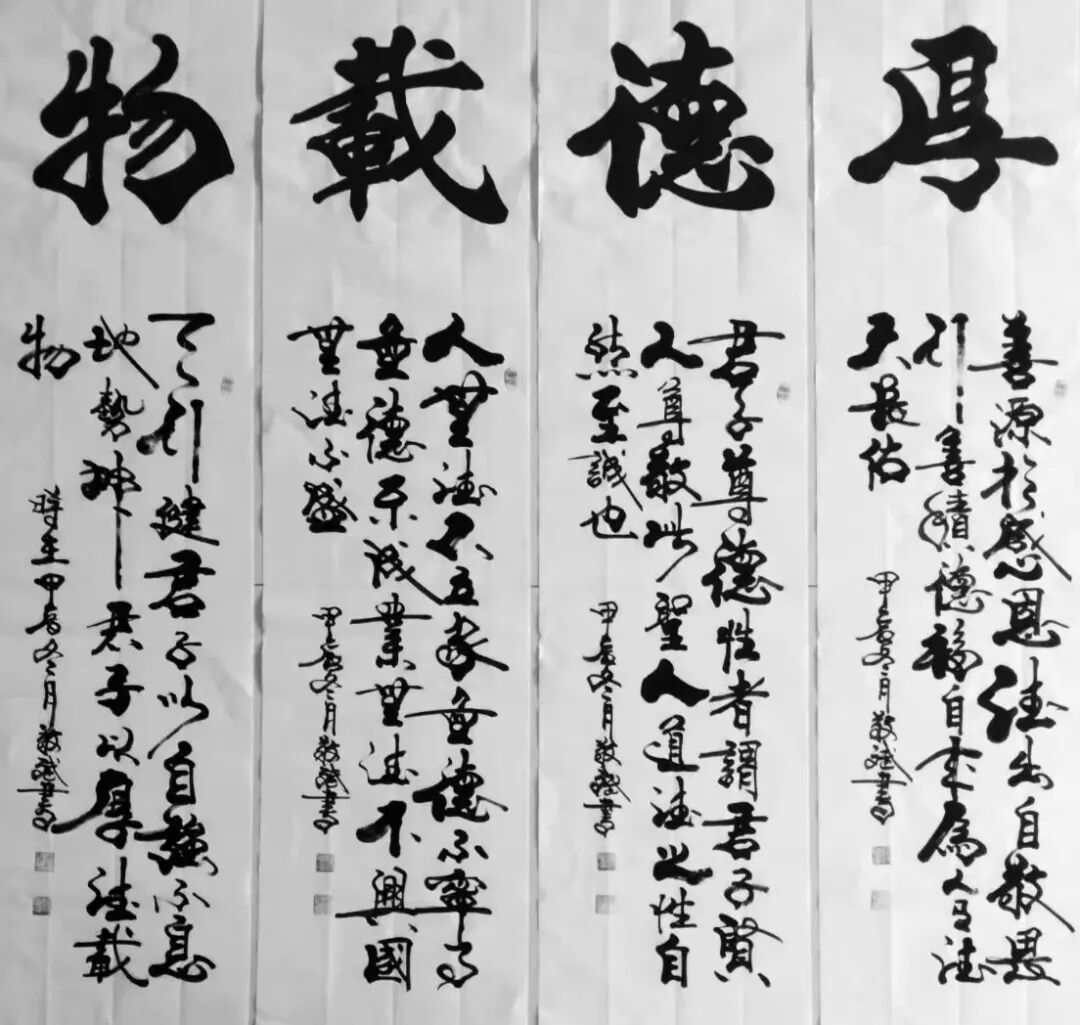 厚
善源於感恩德出自敬畏
行善積德福自來為人有德
天長佑
甲辰冬月敬書
德
君子尊德性者謂君子賢
人尊敬此聖人道德之性自
然至誠也
甲辰冬月敬書
載
人無德不立家無德不寧事
無德不成業無德不興國
無德不盛
甲辰冬月敬書
物
天行健君子以自強不息
地勢坤君子以厚德載
物
時在甲辰冬月敬書